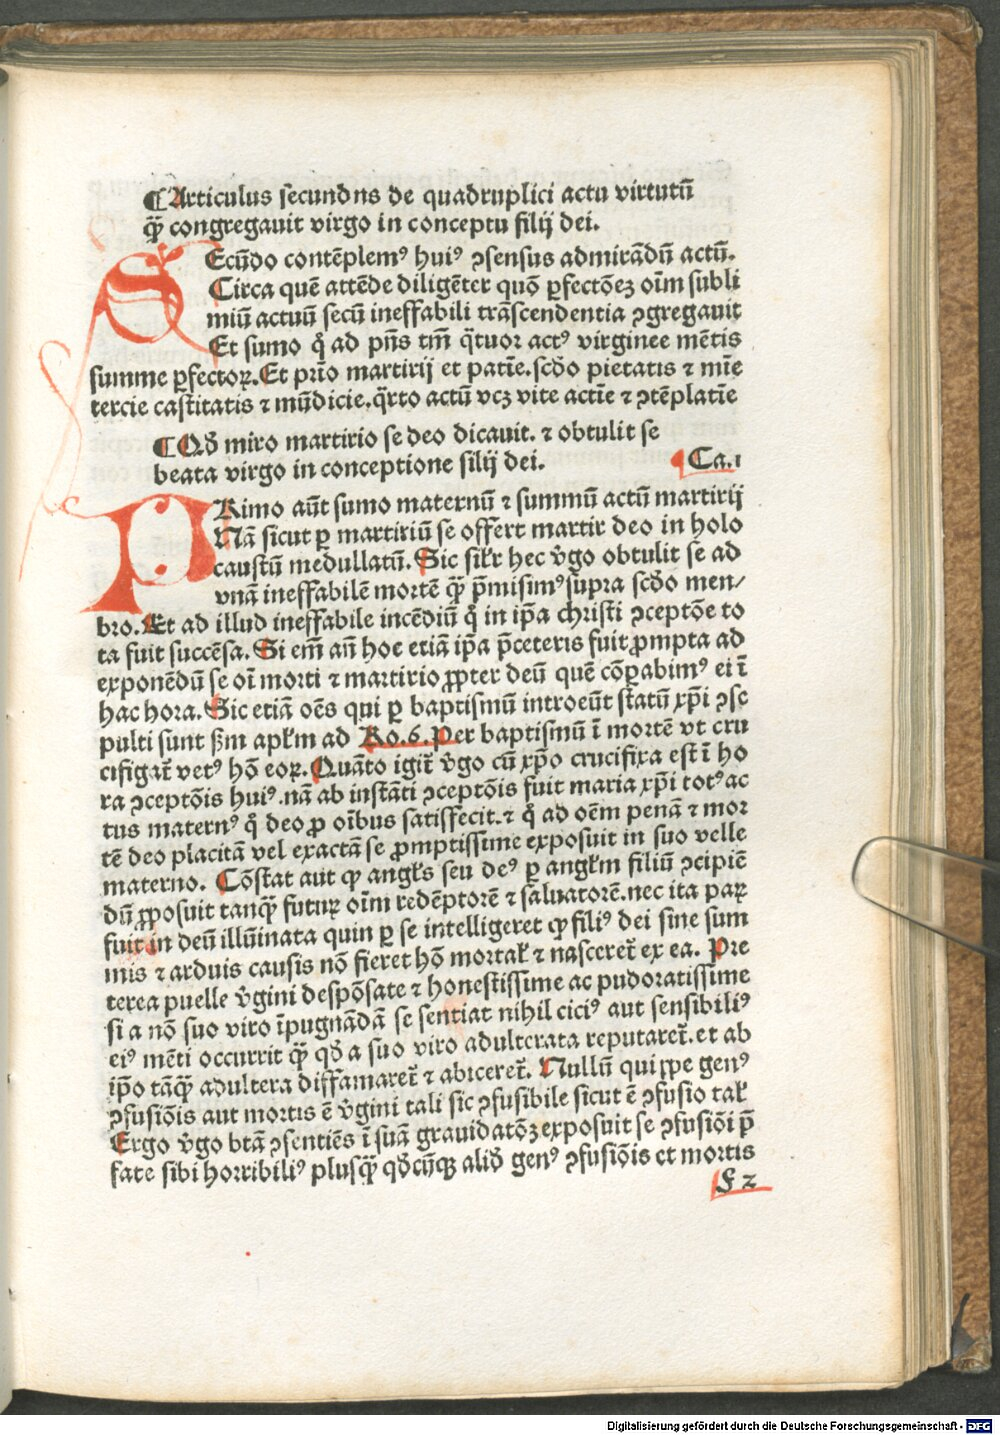 ¶ Articulus secundns de quadruplici actu virtutū
q̄ꝫ congregauit virgo in conceptu filij dei.
SEcūdo contēplemꝰ huiꝰ ꝯsensus admirādū actū.
Circa quē attēde diligēter quō ꝑfectōeꝫ oīm subli
miū actuū secū ineffabili trāscendentia ꝯgregauit
Et sumo ꝙ̊ ad pn̄s tm̄ q̄tuor actꝰ virginee mētis
summe ꝑfectoꝝ. Et prīo martirij et patīe. scd̄o pietatis ⁊ mīe
tercie castitatis ⁊ mūdicie. q̄rto actū vcꝫ vite actīe ⁊ ꝯtēplatīe
¶ Qd̄ miro martirio se deo dicauit. ⁊ obtulit se
beata virgo in conceptione silij dei. Ca.ı
PRimo aūt sumo maternū ⁊ summū actū martirij
Nā sicut ꝑ martiriū se offert martir deo in holo
caustū medullatū. Sic sil̄r hec v̄go obtulit se ad
vnā ineffabilē mortē q̄ꝫ p̄misimꝰ supra scd̄o men/
bro. Et ad illud ineffabile incēdiū ꝙ̊ in ip̄a christi ꝯceptōe to
ta fuit succēsa. Si em̄ an̄ hoc etiā ip̄a p̄ceteris fuit ꝓmpta ad
exponēdū se oī morti ⁊ martirio ꝓpter deū quē cōꝑabimꝰ ei ī
hac hora. Sic etiā oēs qui ꝑ baptismū introeūt statū xp̄i ꝯse
pulti sunt ẜm apl̄m ad Ro.6. Per baptismū ī mortē vt cru
cifigat̄ vetꝰ hō eoꝝ. Quāto igit̄ v̄go cū xp̄o crucifixa est ī ho
ra ꝯceptōis huiꝰ. nā ab instāti ꝯceptōis fuit maria xp̄i totꝰ ac
tus maternꝰ ꝙ̊ deo ꝓ oībus satisfecit. ⁊ ꝙ̊ ad oēm penā ⁊ mor
tē deo placitā vel exactā se ꝓmptissime exposuit in suo velle
materno. Cōstat aut ꝙ angl̄s seu deꝰ ꝑ angl̄m filiū ꝯcipiē
dū ꝓposuit tanq̄ꝫ futuꝝ oīm redēptorē ⁊ saluatorē. nec ita paꝝ
fuit in deū illūinata quin ꝑ se intelligeret ꝙ filiꝰ dei sine sum
mis ⁊ arduis causis nō fieret hō mortal̄ ⁊ nasceret̄ ex ea. Pre
terea puelle v̄gini despōsate ⁊ honestissime ac pudoratissime
si a nō suo viro īpugnādā se sentiat nihil ciciꝰ aut sensibiliꝰ
eiꝰ mēti occurrit q̄ꝫ qd̄ a suo viro adulterata reputaret̄. et ab
ip̄o tāq̄ꝫ adultera diffamaret̄ ⁊ abiceret̄. Nullū quippe genꝰ
ꝯfusiōis aut mortis ē v̄gini tali sic ꝯfusibile sicut ē ꝯfusio tal̄
Ergo v̄go btā ꝯsentiēs ī suā grauidatōꝫ exposuit se ꝯfusiōi p̄
fate sibi horribiliꝰ plusq̄ꝫ qd̄cūqꝫ alid̄ genꝰ ꝯfusiōis et mortis
f 2
Digitalisierung gefördert durch die Deutsche Forschungsgemeinschaft - DFG